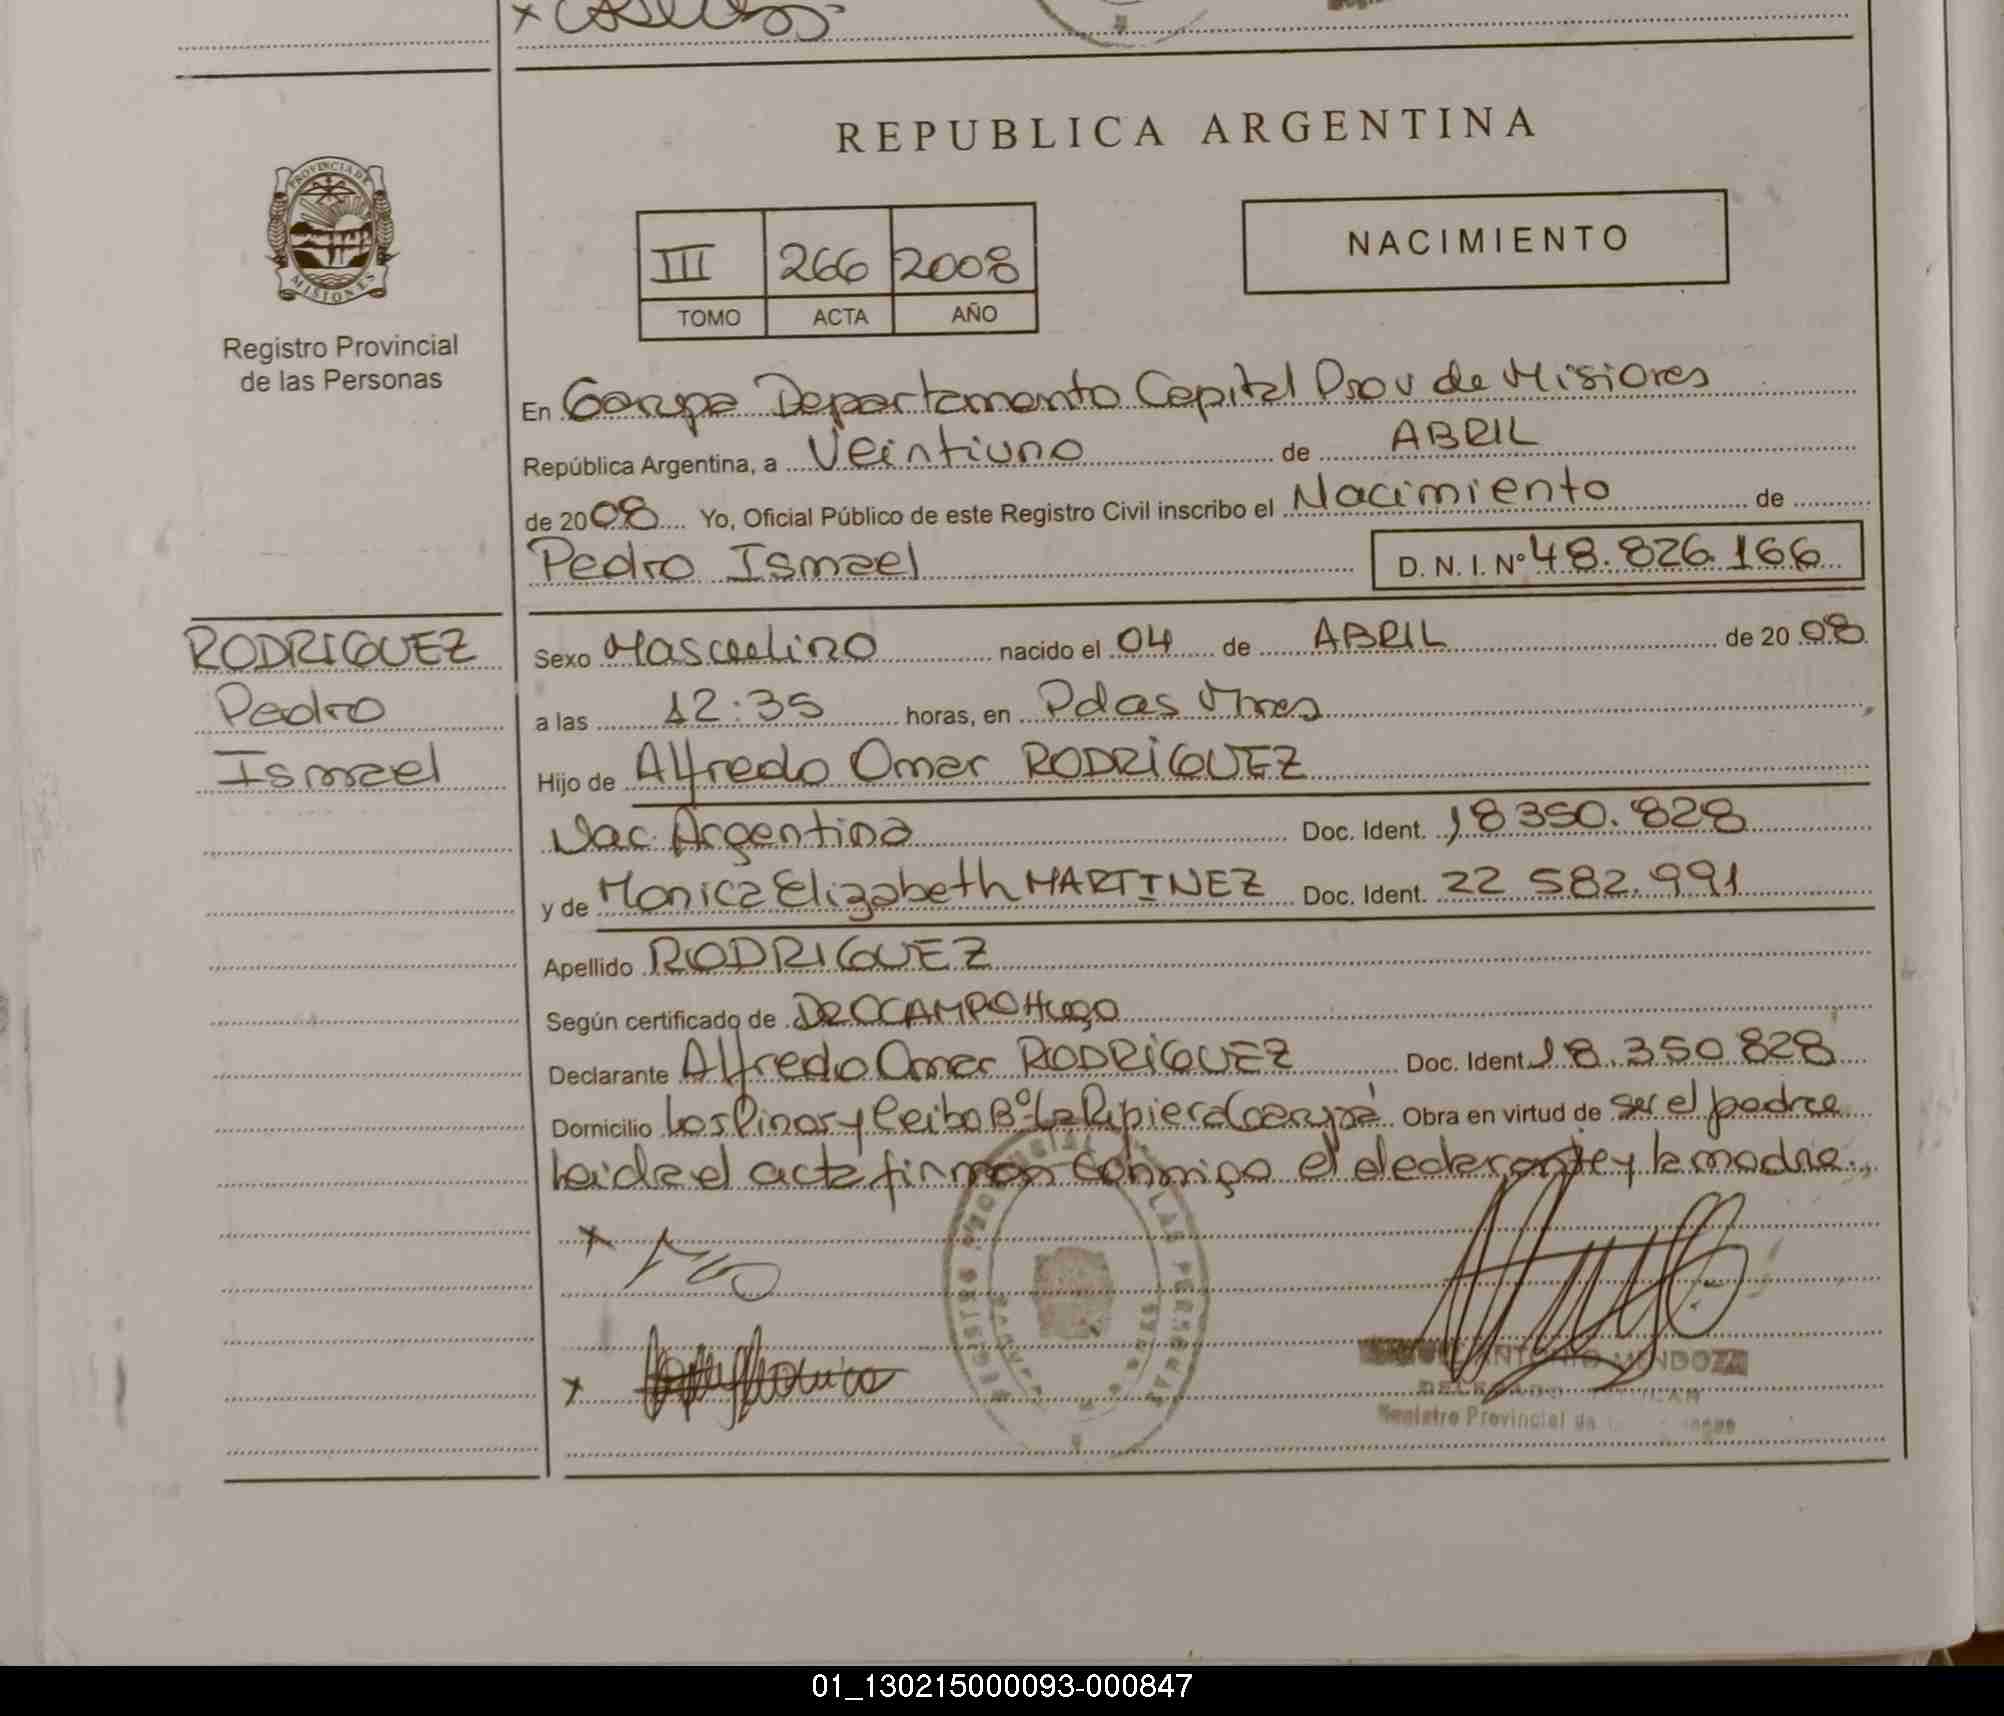 REPUBLICA ARGENTINA
PROVINCIA DE
MISIONES
Registro Provincial
de las Personas
III 266 2008
TOMO ACTA AÑO
NACIMIENTO
En Garupa Departamento Capital Prov de Misiones
República Argentina, a Veintiuno de ABRIL
de 2008 Yo, Oficial Público de este Registro Civil inscribo el Nacimiento de
Pedro Ismael D. N. I. Nº 48.826.166
RODRIGUEZ
Pedro
Ismael
Sexo Masculino nacido el 04 de ABRIL de 2008
a las 12:35 horas, en Pdas Mnes
Hijo de Alfredo Omar RODRÍGUEZ
Nac. Argentina Doc. Ident. 18350.828
y de Monica Elizabeth MARTINEZ Doc. Ident. 22 582.991
Apellido RODRIGUEZ
Según certificado de DR OCAMPO Hugo
Declarante Alfredo Omar RODRÍGUEZ Doc. Ident. 18.350 828
Domicilio Los Pinos y Ceibo Bº La Ripiera Garupá Obra en virtud de ser el padre
Leida el acta firman conmigo el declarante y la madre.
ANTONIO MENDOZA
Registro Provincial de
01_130215000093-000847